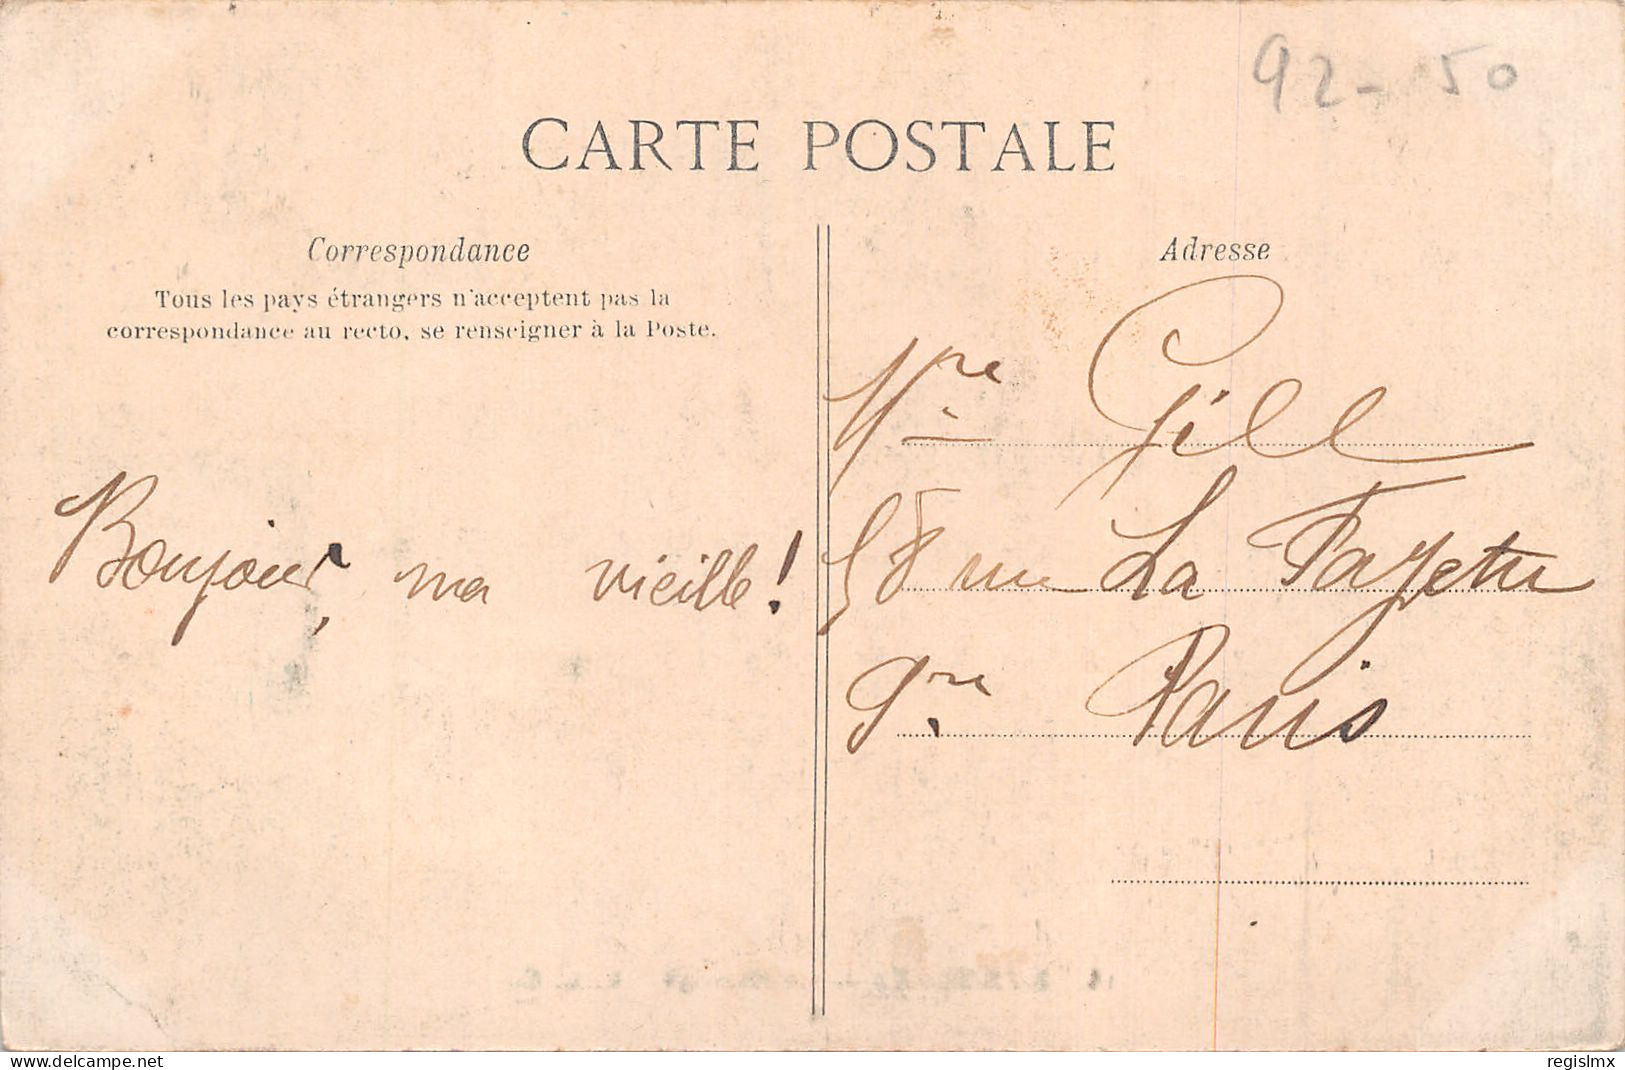 92 - 50
CARTE POSTALE
Correspondance
Tous les pays étrangers n'acceptent pas la
correspondance au recto, se renseigner à la Poste.
Bonjour, ma vieille !
Adresse
Gill
58 rue La Fayette
Paris
delcampe.net
regislmx